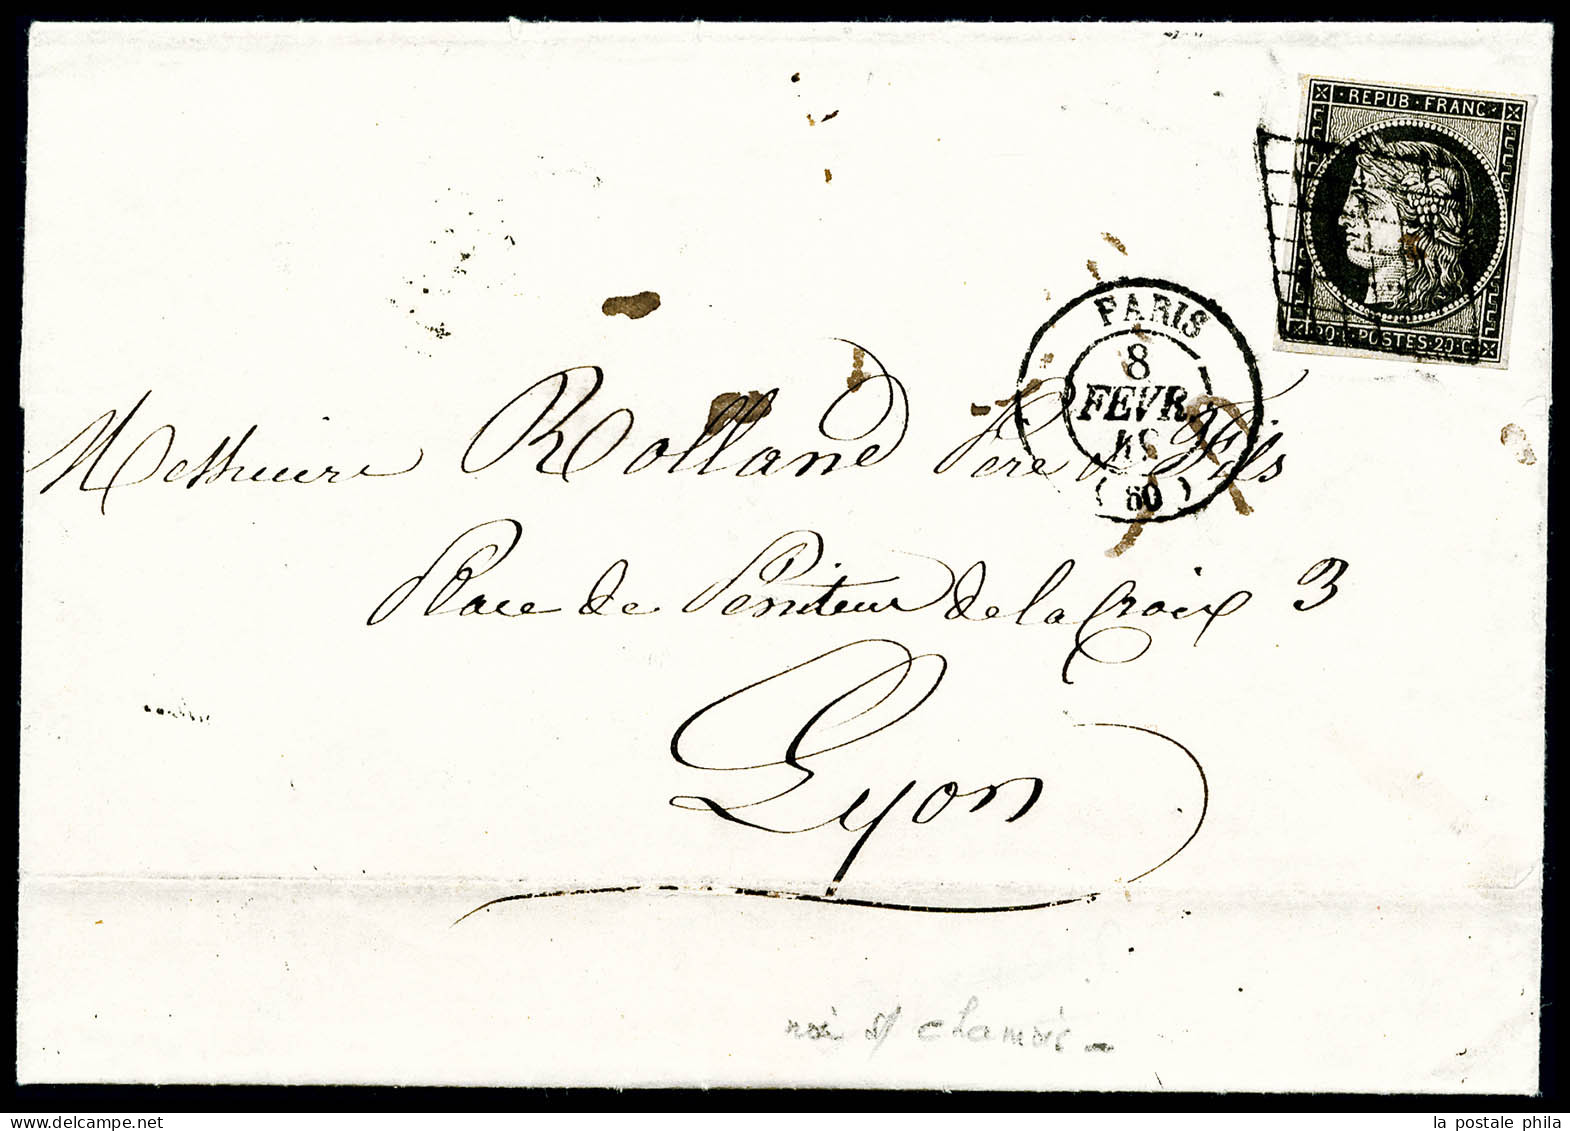 · REPUB · FRANC ·
20·C · POSTES · 20·C ·
PARIS
8
FEVR.
49
(60)
Messieurs Rolland Père & Fils
Place de Peniteur de la Croix 3
Lyon
noir s/ chamois
la postale phila